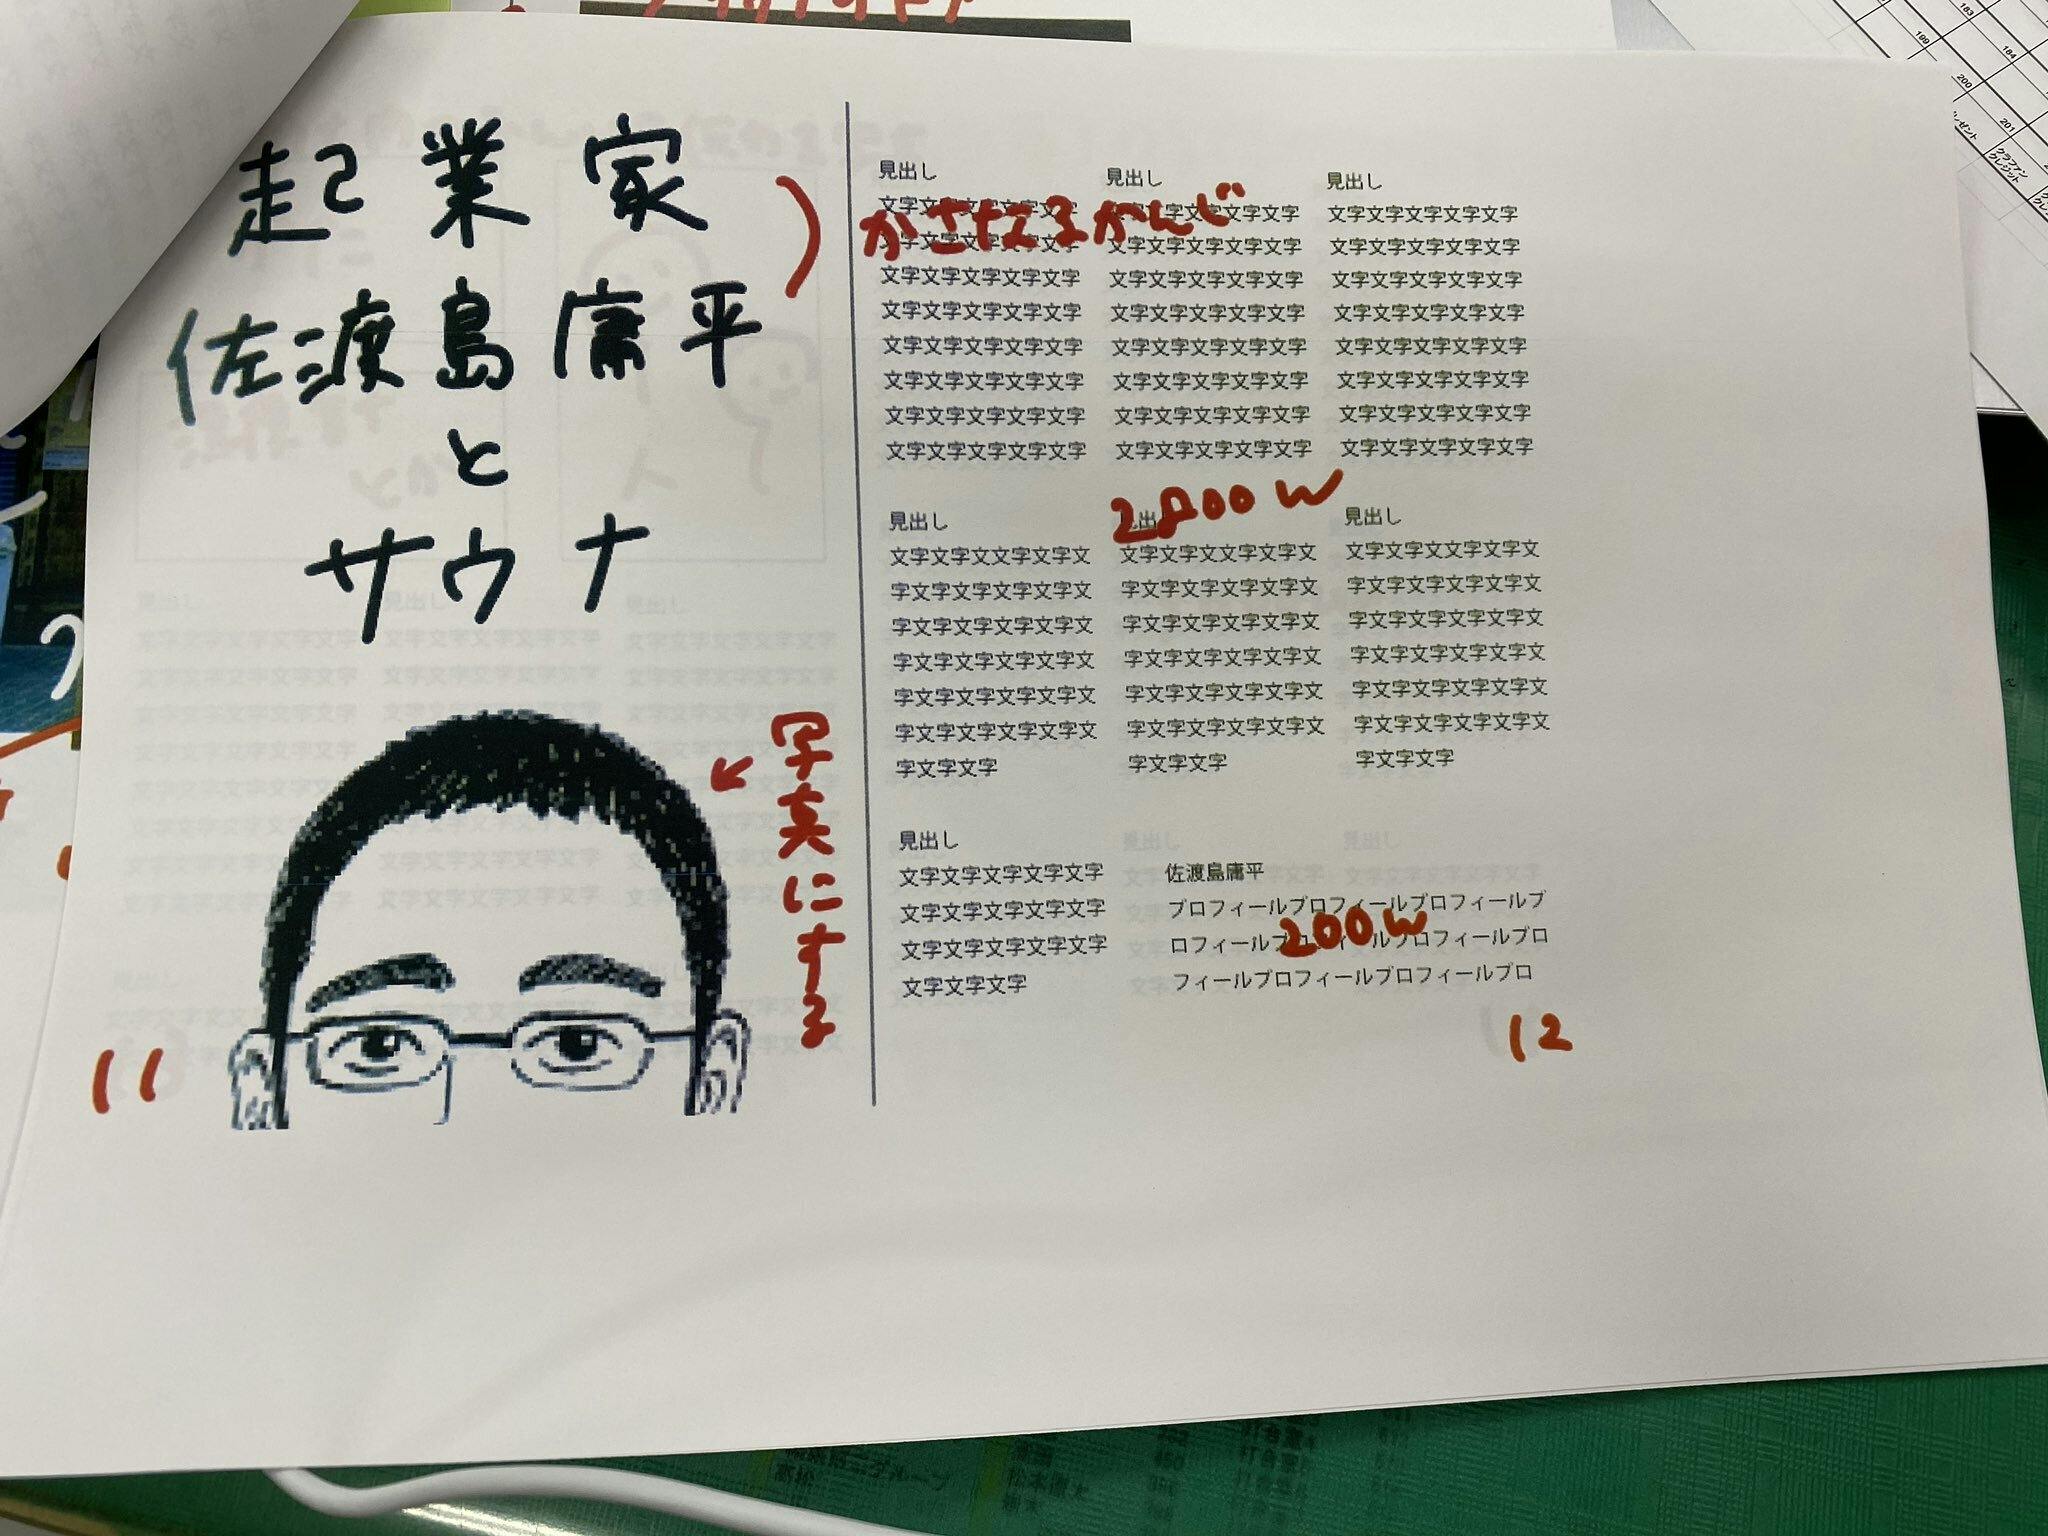 起業家
佐渡島庸平
と
サウナ
かんじ
写真にする
11
見出し
文字文字文字文字文字
文字文字文字文字文字
文字文字文字文字文字
文字文字文字文字文字
文字文字文字文字文字
文字文字文字文字文字
文字文字文字文字文字
文字文字文字文字文字
見出し
文字文字文字文字文字
文字文字文字文字文字
文字文字文字文字文字
文字文字文字文字文字
文字文字文字文字文字
文字文字文字文字文字
文字文字文字文字文字
文字文字文字文字文字
見出し
文字文字文字文字文字
文字文字文字文字文字
文字文字文字文字文字
文字文字文字文字文字
文字文字文字文字文字
文字文字文字文字文字
文字文字文字文字文字
文字文字文字文字文字
2800W
見出し
文字文字文文字文字文
字文字文字文字文字文
字文字文字文字文字文
字文字文字文字文字文
字文字文字文字文字文
字文字文字文字文字文
字文字文字
見出し
文字文字文文字文字文
字文字文字文字文字文
字文字文字文字文字文
字文字文字文字文字文
字文字文字文字文字文
字文字文字文字文字文
字文字文字
見出し
文字文字文文字文字文
字文字文字文字文字文
字文字文字文字文字文
字文字文字文字文字文
字文字文字文字文字文
字文字文字文字文字文
字文字文字
見出し
文字文字文字文字文字
文字文字文字文字文字
文字文字文字文字文字
文字文字文字
佐渡島庸平
プロフィールプロフィールプロフィールプ
ロフィールプロフィールプロフィールプロ
フィールプロフィールプロフィールプロ
200W
12